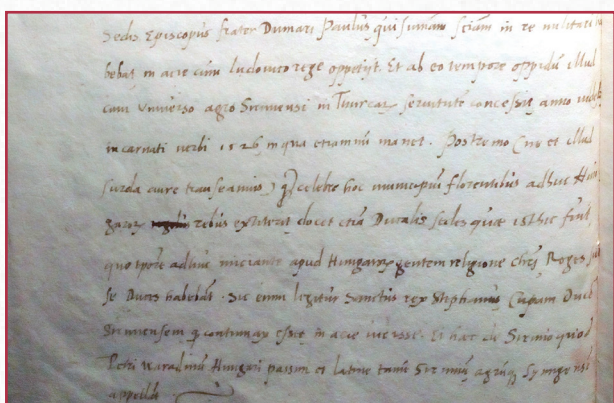 Sedis Episcopus frater Dumari Paulus qui sum̃am sciam in re militari
bebat in acie cum ludovico rege oppetijt. Et ab eo tempore oppidũ illud
cum universo agro Sirmiensi in Turcar servitutẽ concessit anno
incarnati verbi 1526 in qua etiamnũ manet. Postremo (ne et illud
surda aure transeamus) celebre hoc municipiũ florentibus adhuc Hun
garor rebus extiterit docet etiã Ducalis sedes quae isthic fuit
quo tpore adhuc iniciante apud Hungaror gentem religione Reges
se Duces habebãt. Sic enim legitur Sanctus rex Stephanus Cupam Ducẽ
Sirmiensem contumax esset in acie Et haec de Sirmio quod
Petri waradinũ Hungari passim et latine tamẽ Sirmium
appellãt